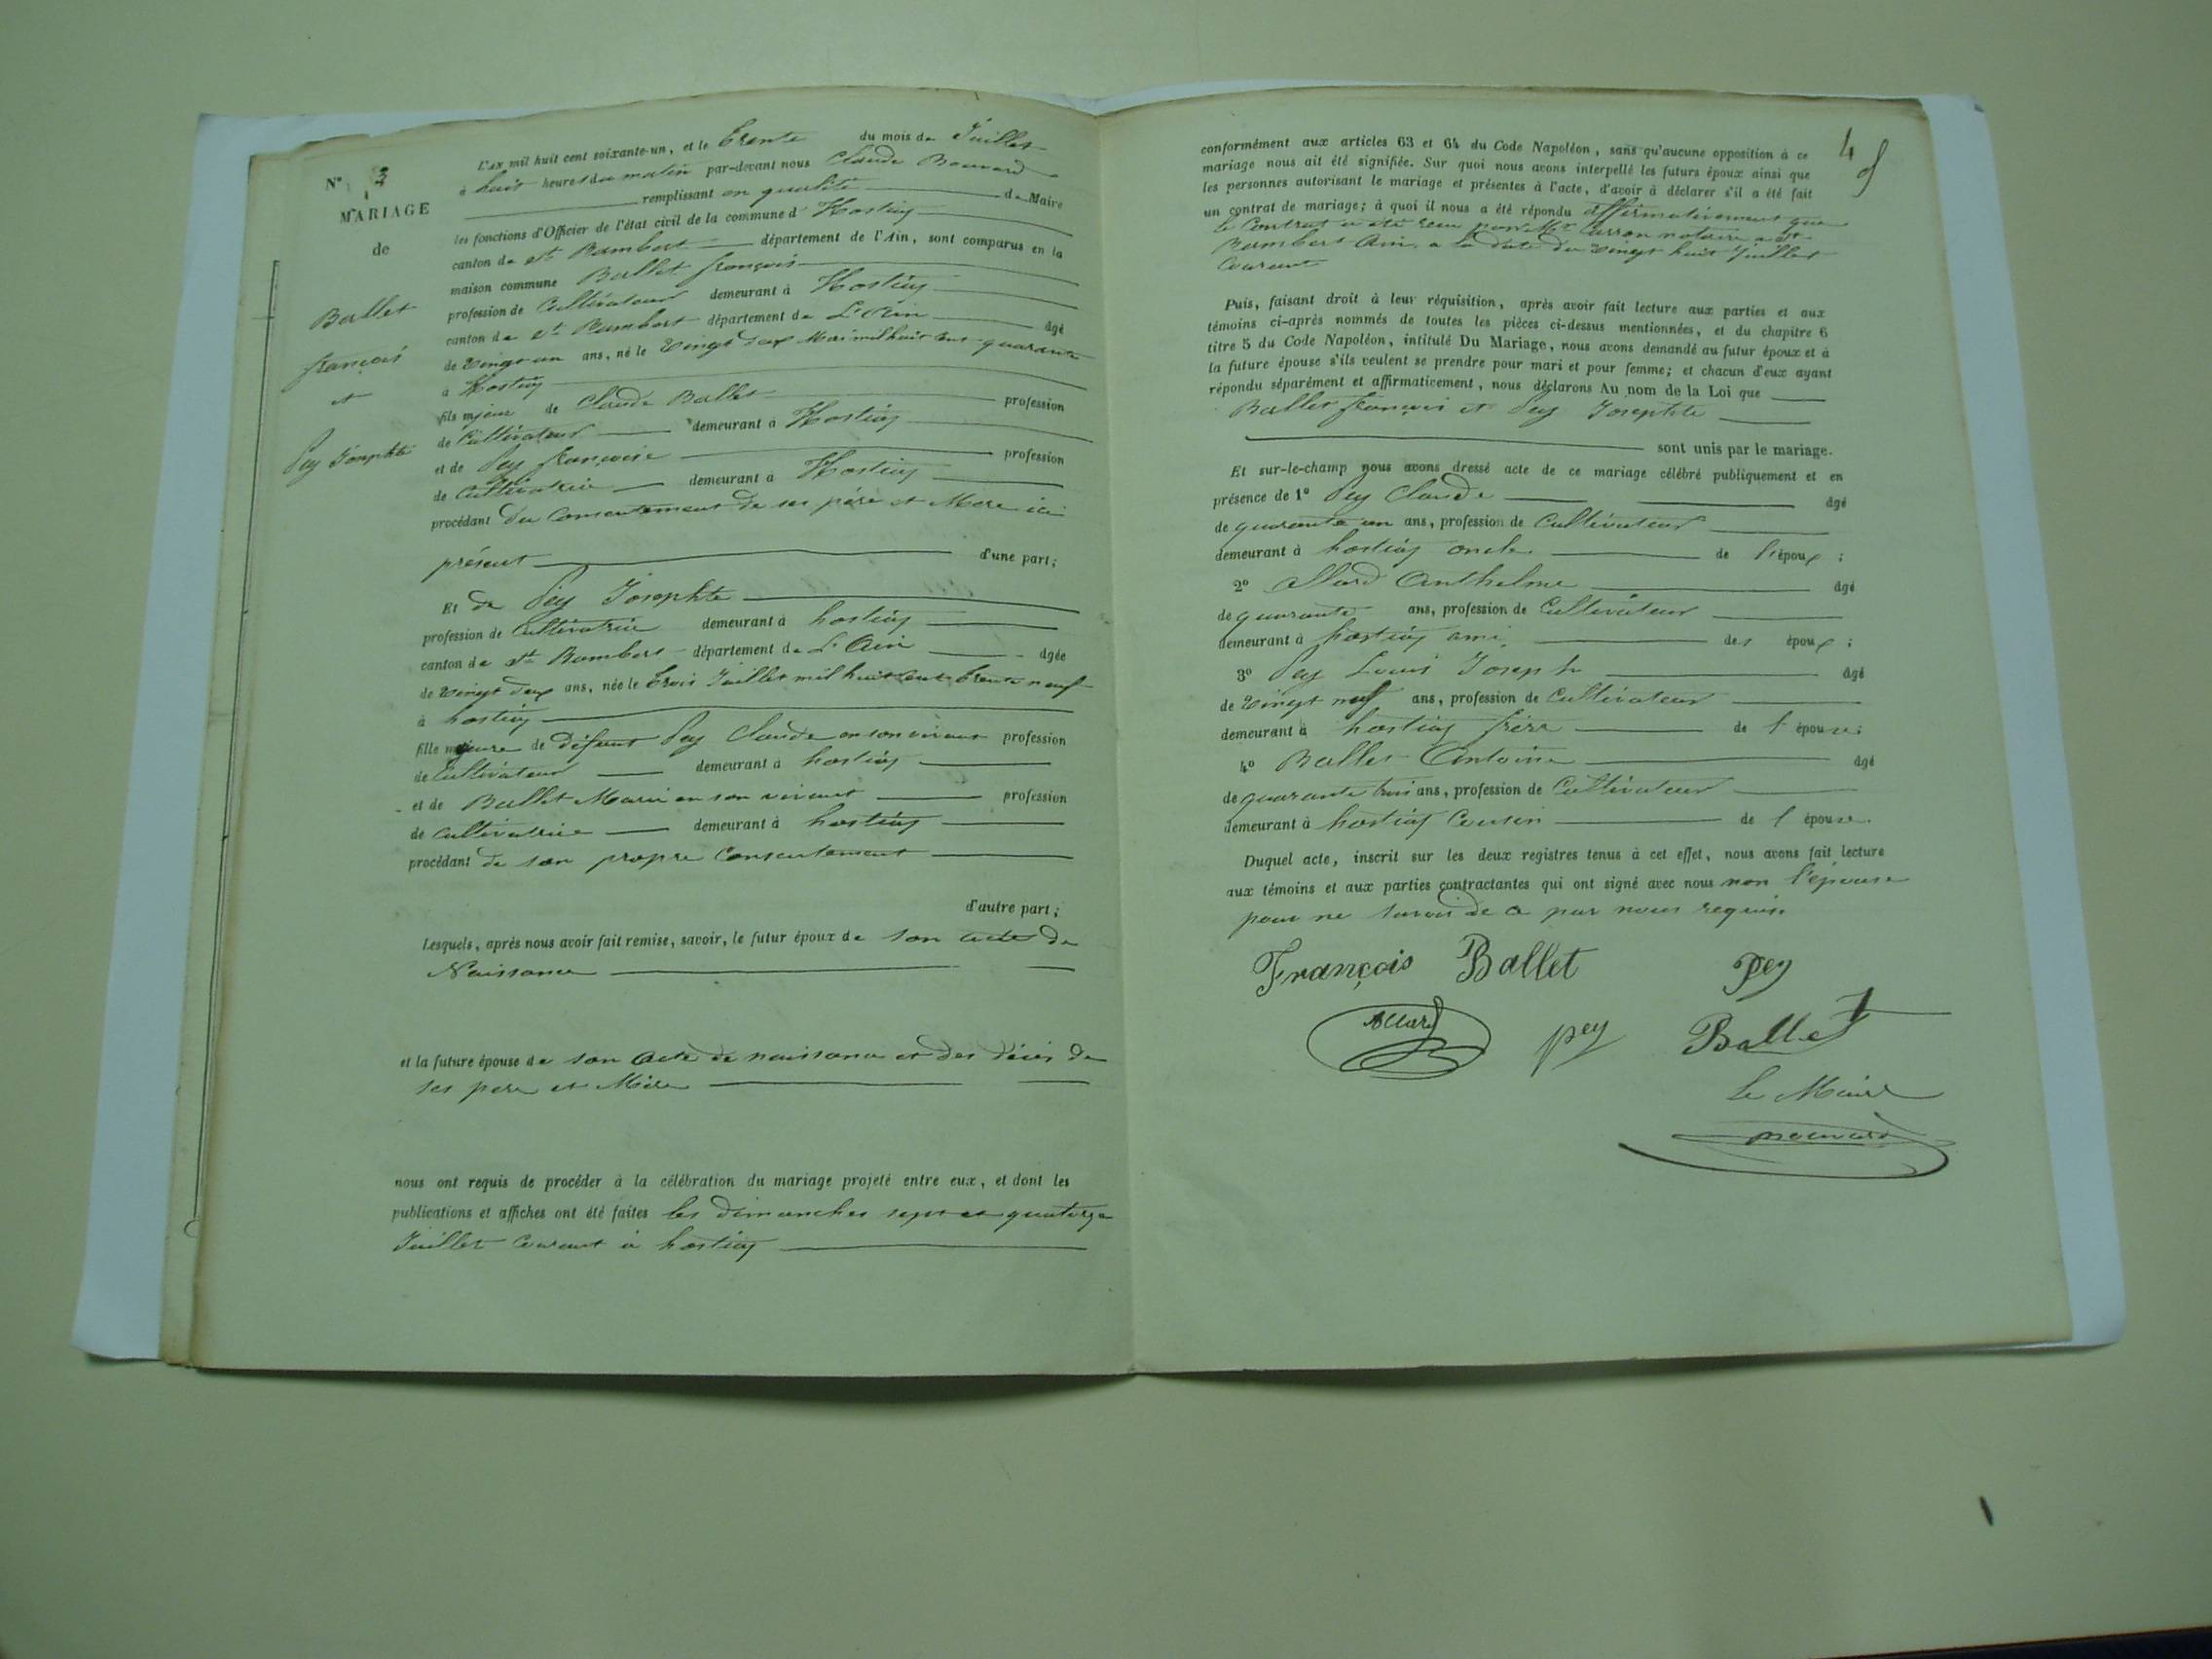 N° 3
MARIAGE
de
Ballet
françois
et
Pey Josephte
L'an mil huit cent soixante-un, et le trente du mois de Juillet
à huit heures du matin par-devant nous Claude Bonnard
remplissant en qualité de Maire
les fonctions d'Officier de l'état civil de la commune d' Hostiaz
canton de St Rambert département de l'Ain, sont comparus en la
maison commune Ballet françois
profession de Cultivateur demeurant à Hostiaz
canton de St Rambert département de L'Ain âgé
de vingt un ans, né le vingt deux Mai mil huit cent quarante
à Hostiaz
fils mjeur de Claude Ballet profession
de Cultivateur demeurant à Hostiaz
et de Pey françoise profession
de Cultivatrice demeurant à Hostiaz
procédant du Consentement de ses père et Mère ici
présent d'une part;
Et de Pey Josephte
profession de Cultivatrice demeurant à hostiaz
canton de St Rambert département de L'Ain âgée
de vingt deux ans, née le trois Juillet mil huit cent trente neuf
à hostiaz
fille majeure de défunt Pey Claude en son vivant profession
de Cultivateur demeurant à hostiaz
et de Ballet Marie en son vivant profession
de cultivatrice demeurant à hostiaz
procédant de son propre Consentement
d'autre part;
Lesquels, après nous avoir fait remise, savoir, le futur époux de son acte de
Naissance
et la future épouse de son acte de naissance et des décès de
ses pere et Mère
nous ont requis de procéder à la célébration du mariage projeté entre eux, et dont les
publications et affiches ont été faites les dimanches sept et quatorze
Juillet Courant à hostiaz
conformément aux articles 63 et 64 du Code Napoléon, sans qu'aucune opposition à ce
mariage nous ait été signifiée. Sur quoi nous avons interpellé les futurs époux ainsi que
les personnes autorisant le mariage et présentes à l'acte, d'avoir à déclarer s'il a été fait
un contrat de mariage; à quoi il nous a été répondu affirmativement que
le Contrat a été reçu par Me notaire a St
Rambert Ain, a la date du vingt huit Juillet
Courant
Puis, faisant droit à leur réquisition, après avoir fait lecture aux parties et aux
témoins ci-après nommés de toutes les pièces ci-dessus mentionnées, et du chapitre 6
titre 5 du Code Napoléon, intitulé Du Mariage, nous avons demandé au futur époux et à
la future épouse s'ils veulent se prendre pour mari et pour femme; et chacun d'eux ayant
répondu séparément et affirmativement, nous déclarons Au nom de la Loi que
Ballet françois et Pey Josephte
sont unis par le mariage.
Et sur-le-champ nous avons dressé acte de ce mariage célébré publiquement et en
présence de 1° Pey Claude âgé
de quarante un ans, profession de Cultivateur
demeurant à hostiaz oncle de l'époux ;
2° Allard Anthelme âgé
de quarante ans, profession de Cultivateur
demeurant à hostiaz ami des époux ;
3° Pey Louis Joseph âgé
de vingt neuf ans, profession de Cultivateur
demeurant à hostiaz frère de l'épouse;
4° Ballet Antoine âgé
de quarante trois ans, profession de Cultivateur
demeurant à hostiaz Cousin de l'épouse.
Duquel acte, inscrit sur les deux registres tenus à cet effet, nous avons fait lecture
aux témoins et aux parties contractantes qui ont signé avec nous non l'épouse
pour ne savoir de ce par nous requise
François Ballet Pey
Allard pey Ballet
Le Maire
Bonnard